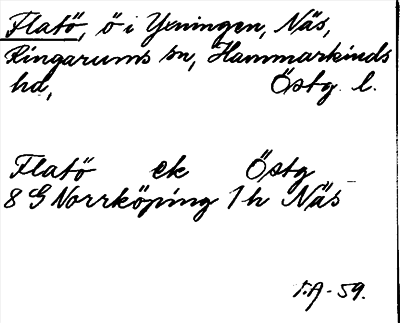 Flatö, ö i Yxningen, Näs,
Ringarums sn, Hammarkinds
hd, Östg. l.
Flatö ek Östg
8 G Norrköping 1 h Näs
T.A - 59.